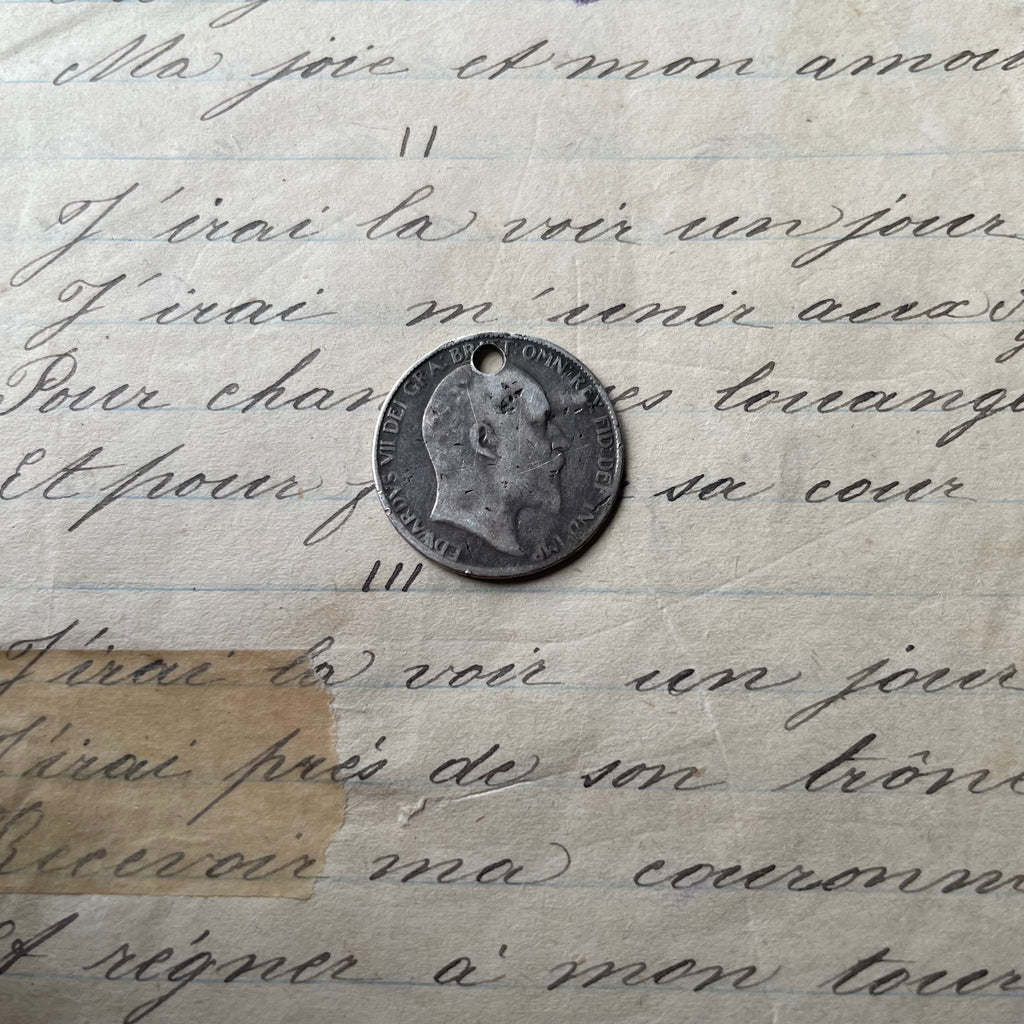 Ma joie et mon amou
II
J'irai la voir un jour
J'irai m'unir aux
Pour chan es louang
Et pour sa cour
III
J'irai la voir un jour
J'irai prés de son trône
Recevoir ma couronn
Et régner à mon tour
EDWARDVS VII DEI GRA: BR OMN: REX FID: DEF: IND: IMP: